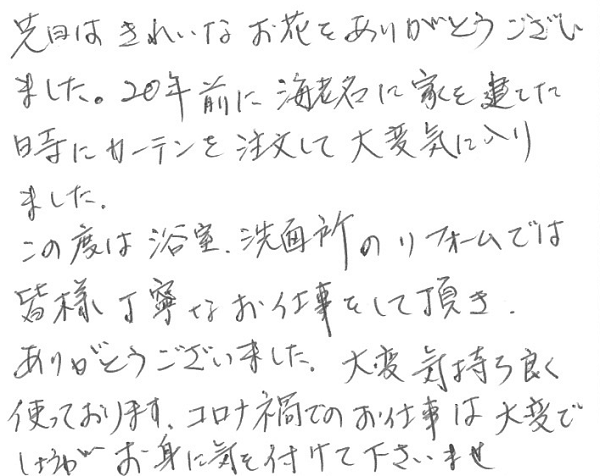 先日はきれいなお花をありがとうござい
ました。20年前に海老名に家を建てた
時にカーテンを注文して大変気に入り
ました.
この度は浴室、洗面所のリフォームでは
皆様丁寧なお仕事をして頂き.
ありがとうございました。大変気持ち良く
使っております、コロナ禍でのお仕事は大変で
しょうが お身に気を付けて下さいませ